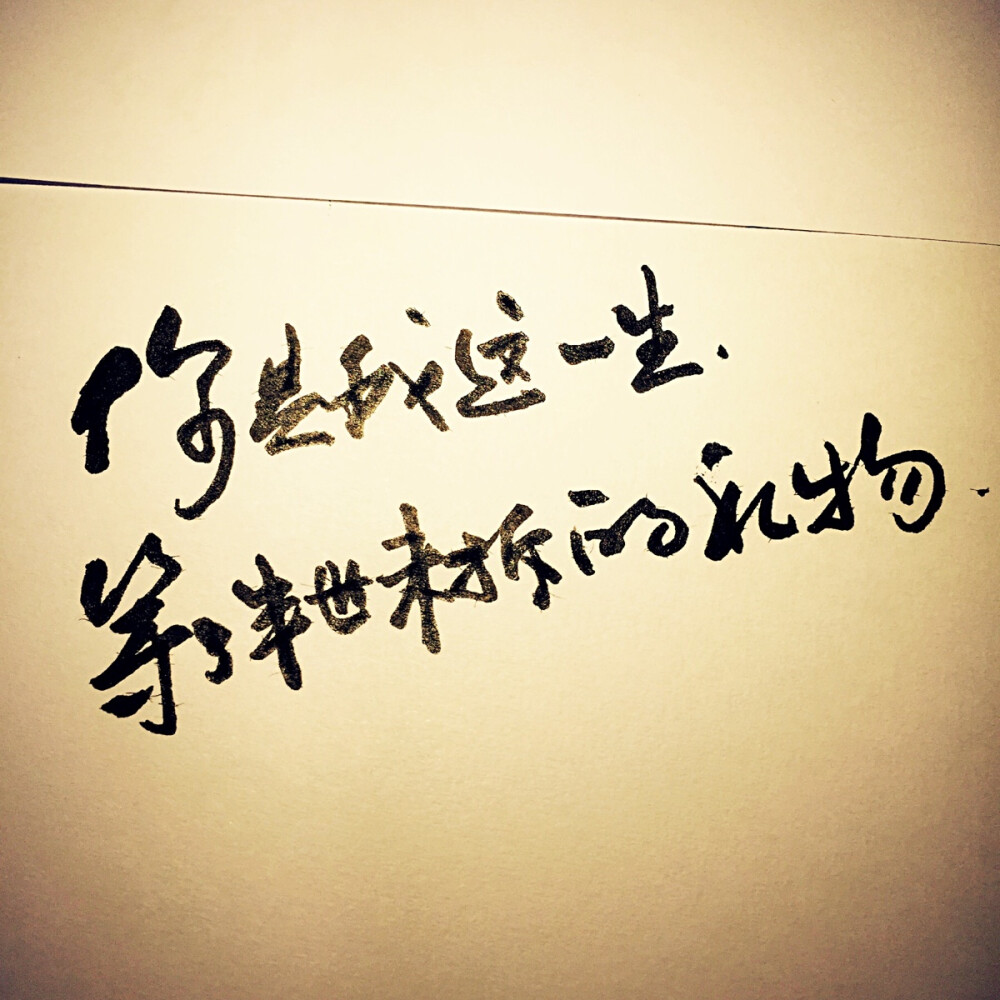 你是我这一生.
等了半世未拆的礼物.